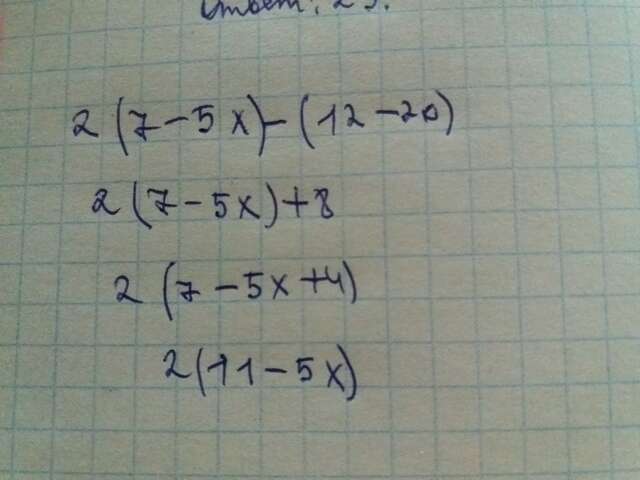 Ответ: 23.
2(7-5x)-(12-20)
2(7-5x)+8
2(7-5x+4)
2(11-5x)